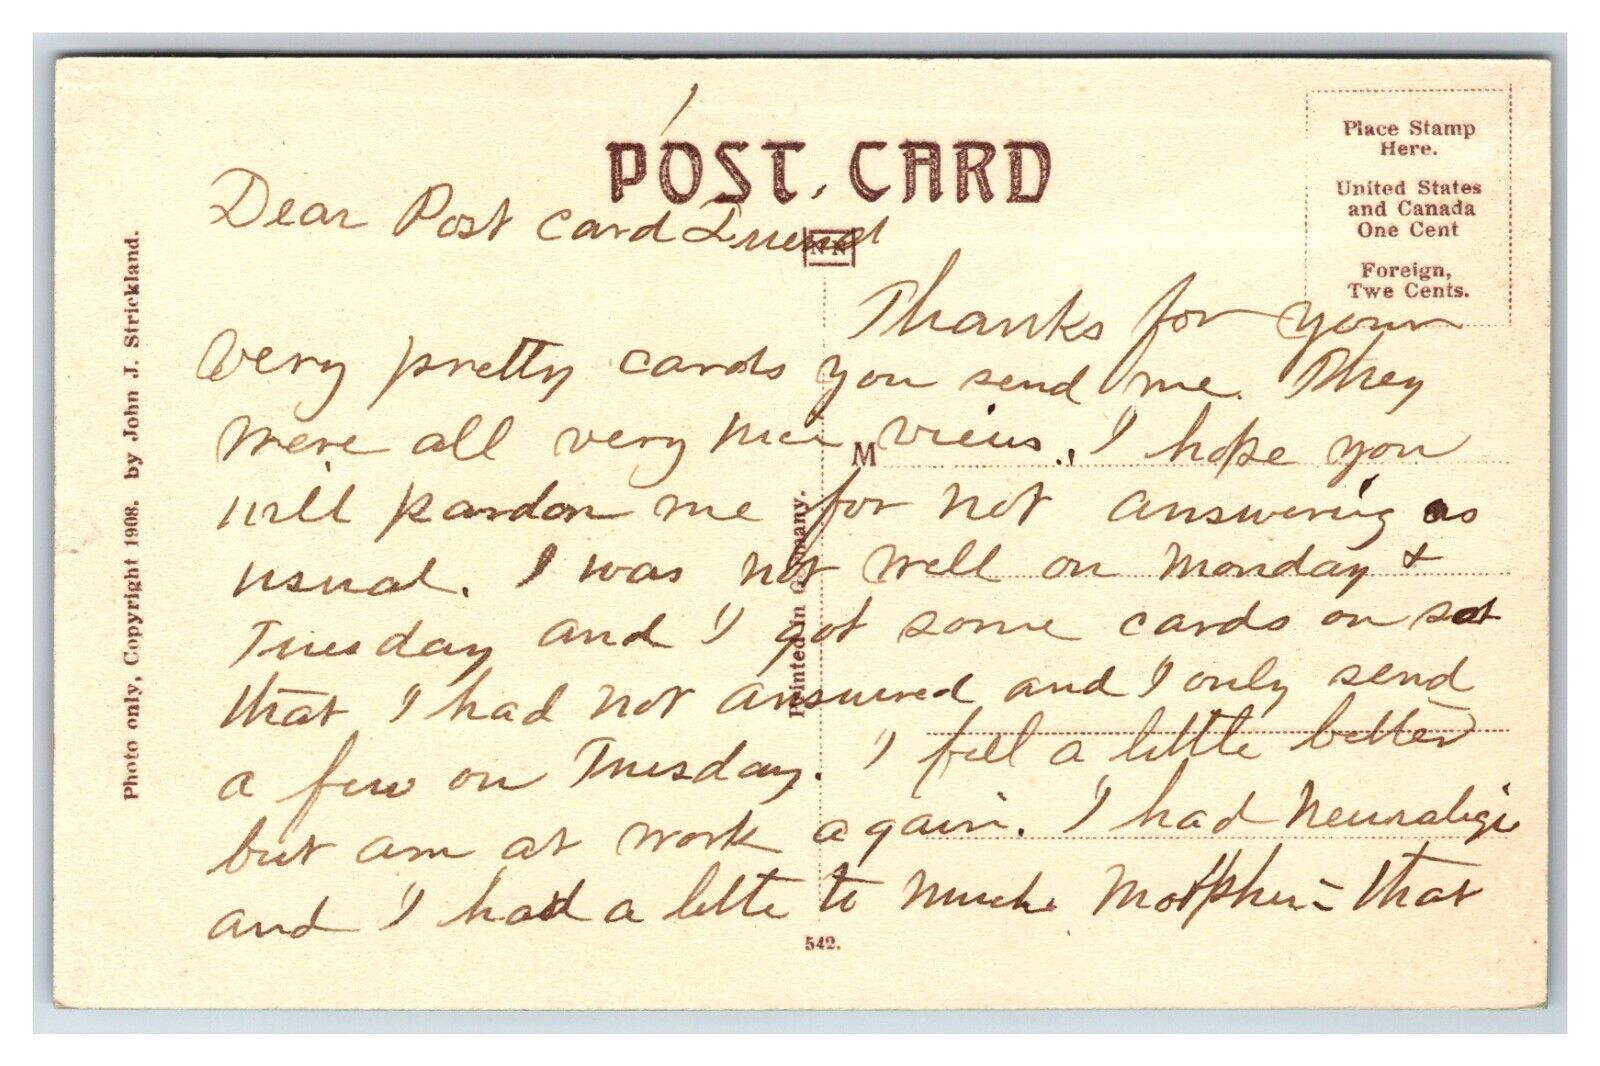 1
POST CARD
Place Stamp
Here.
United States
and Canada
One Cent
Foreign,
Two Cents.
NN
Photo only, Copyright 1908. by John J. Strickland.
Printed in Germany.
M
Dear Post Card Friend
Thanks for your
very pretty cards you send me. They
were all very nice views. I hope you
will pardon me for not answering as
usual. I was not well on Monday &
Tuesday and I got some cards on Sat
that I had not answered and I only send
a few on Tuesday. I feel a little better
but am at work again. I had Neuraligi
and I had a little to much Morphin - that
542.